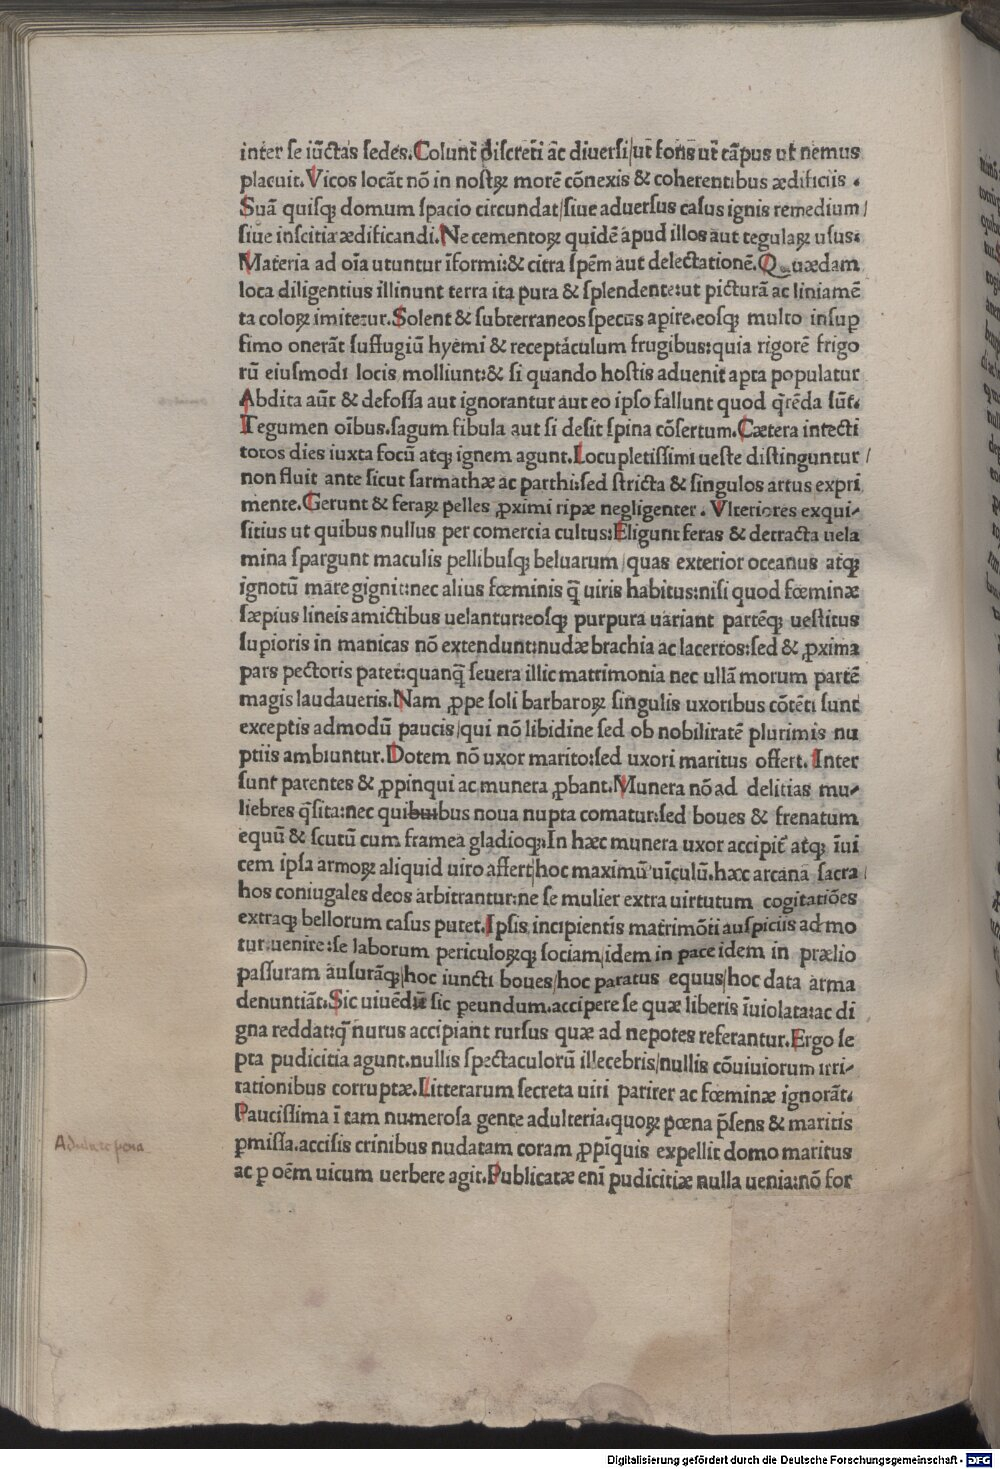 inter se iũctas sedes. Colunt̃ discreti ãc diuersi/ut fons ut cãpus ut nemus
placuit. Vicos locãt nõ in nostꝝ morẽ cõnexis & coherentibus ædificiis .
Suã quisqꝫ domum spacio circundat/siue aduersus casus ignis remedium/
siue inscitia ædificandi. Ne cementoꝝ quidẽ apud illos aut tegulaꝝ usus:
Materia ad oĩa utuntur ĩformi:& citra spẽm aut delectationẽ. Quædam
loca diligentius illinunt terra ita pura & splendente:ut picturã ac liniamẽ
ta coloꝝ imitetur. Solent & subterraneos specus apire.eosqꝫ multo insuꝑ
fimo onerãt suffugiũ hyemi & receptaculum frugibus:quia rigorẽ frigo
rũ eiusmodi locis molliunt:& si quando hostis aduenit aperta populatur
Abdita aũt & defossa aut ignorantur aut eo ipso fallunt quod q̃rẽda sũt.
Tegumen oĩbus.sagum fibula aut si desit spina cõsertum. Cætera intecti
totos dies iuxta focũ atqꝫ ignem agunt. Locupletissimi ueste distinguntur/
non fluit ante sicut sarmathæ ac parthi:sed stricta & singulos artus expri
mente. Gerunt & feraꝝ pelles ꝓximi ripæ negligenter . Vlteriores exqui-
sitius ut quibus nullus per comercia cultus: Eligunt feras & detracta uela
mina spargunt maculis pellibusqꝫ beluarum/quas exterior oceanus atqꝫ
ignotũ mare gignit:nec alius fœminis q̃ uiris habitus:nisi quod fœminæ
sæpius lineis amictibus uelantur:eosqꝫ purpura uariant partẽqꝫ uestitus
supioris in manicas nõ extendunt:nudæ brachia ac lacertos:sed & ꝓxima
pars pectoris patet:quanq̃ seuera illic matrimonia nec ullã morum partẽ
magis laudaueris. Nam ꝓpe soli barbaroꝝ singulis uxoribus cõtẽti sunt
exceptis admodũ paucis/qui nõ libidine sed ob nobilitatẽ plurimis nu
ptiis ambiuntur. Dotem nõ uxor marito:sed uxori maritus offert. Inter
sunt parentes & ꝓpinqui ac munera ꝓbant. Munera nõ ad delitias mu-
liebres q̃sita:nec quibuibus noua nupta comatur:sed boues & frenatum
equũ & scutũ cum framea gladioqꝫ. In hæc munera uxor accipit̃ atqꝫ ĩui
cem ipsa armoꝝ aliquid uiro affert/hoc maximũ uĩculũ.hæc arcana sacra/
hos coniugales deos arbitrantur:ne se mulier extra uirtutum cogitatiões
extraqꝫ bellorum casus putet. Ipsis incipientis matrimõii auspiciis admo
tur.uenire:se laborum periculoꝝqꝫ sociam/idem in pace idem in prælio
passuram ausurãqꝫ/hoc iuncti boues/hoc paratus equus/hoc data arma
denunciãt. Sic uiuẽdũ sic peundum.accipere se quæ liberis ĩuiolata:ac di
gna reddat:q̃ nurus accipiant rursus quæ ad nepotes referantur. Ergo se
pta pudicitia agunt.nullis spectaculorũ illecebris/nullis cõuiuiorum irri-
tationibus corruptæ. Litterarum secreta uiri pariter ac fœminæ ignorãt.
Paucissima ĩ tam numerosa gente adulteria.quoꝝ pœna p̃sens & maritis
ꝑmissa.accisis crinibus nudatam coram ꝓpĩquis expellit domo maritus
ac ꝑ oẽm uicum uerbere agit. Publicatæ eni pudicitiæ nulla uenia:nõ for
Digitalisierung gefördert durch die Deutsche Forschungsgemeinschaft - DFG